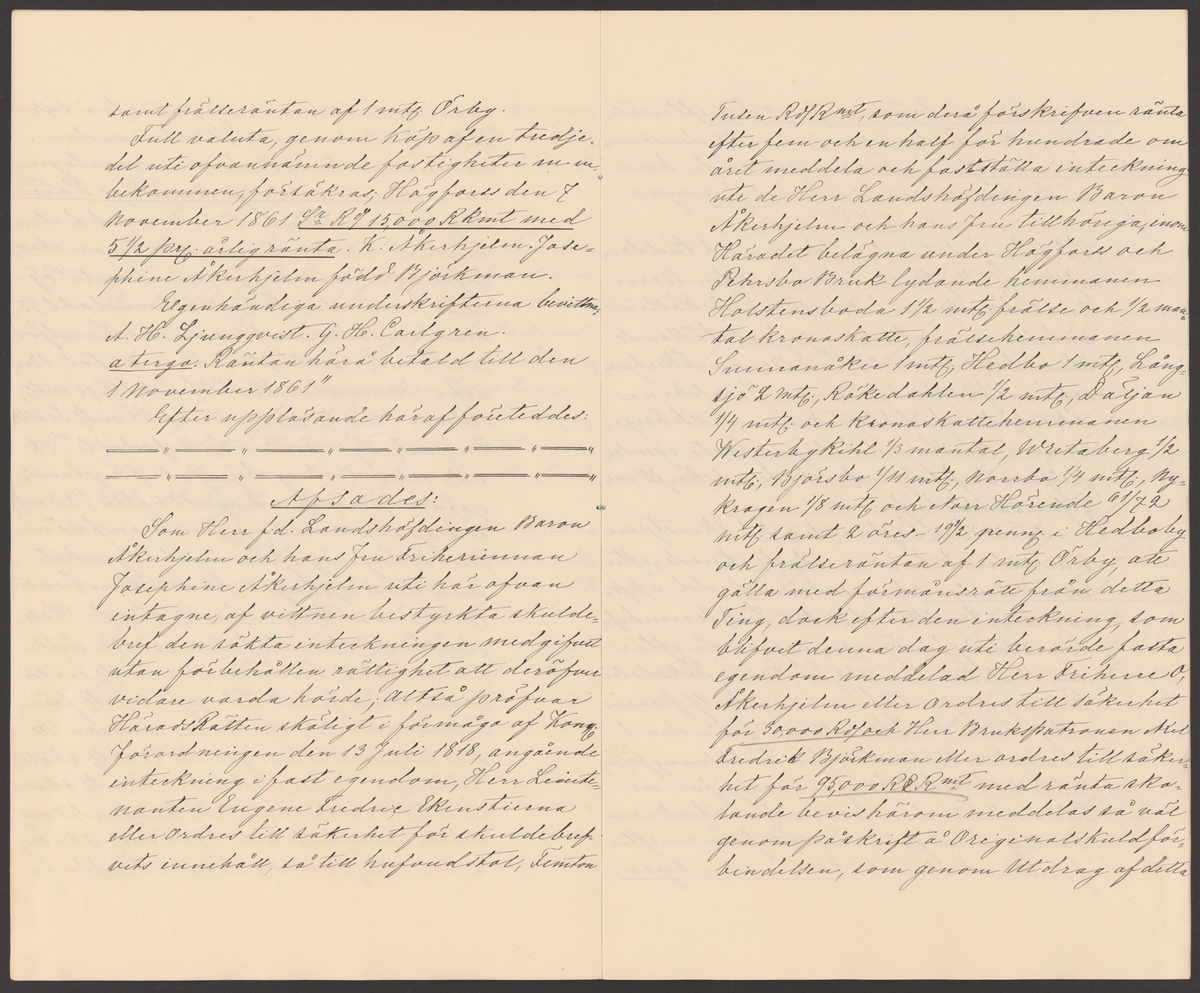 samt frälseräntan af 1 mtl Örby.
Full valuta, genom köp af en tredje-
del uti ofvannämnde fastigheter m.m.
bekommen, försäkras; Högforss den 7
November 1861 Sa Rdr 15,000 Rkmt med
5 1/2 prc årlig ränta. K. Åkerhjelm. Jose-
phine Åkerhjelm född Björkman.
Egenhändiga underskrifterna bevittna,
A. H. Ljungqvist. G. H. Carlgren.
a tergo: Räntan härå betald till den
1 November 1861"
Efter uppläsande häraf företeddes:
Afsades:
Som Herr f.d. Landshöfdingen Baron
Åkerhjelm och hans fru Friherrinnan
Josephine Åkerhjelm uti här ofvan
intagne, af vittnen bestyrkta skulde-
bref den sökta inteckningen medgifvit
utan förbehållen rättighet att deröfver
vidare varda hörde; altså pröfvar
HäradsRätten skäligt i förmågo af Kongl.
Förordningen den 13 Juli 1818, angående
inteckning i fast egendom, Herr Lieute-
nanten Eugene Fredric Ekenstierna
eller ordres till säkerhet för skuldebref-
vets innehåll, så till hufvudstol, Femton
Tusen Rdr Rmt, som derå förskrifven ränta
efter fem och en half för hundrade om
året meddela och fastställa inteckning
uti de Herr Landshöfdingen Baron
Åkerhjelm och hans fru tillhöriga, inom
Häradet belägna under Högforss och
Pehrsbo Bruk lydande hemmanen
Holstensboda 1 1/2 mtl frälse och 1/2 man-
tal kronoskatte, frälsehemmanen
Sunnanåker 1 mtl, Hedbo 1 mtl, Lång-
sjö 2 mtl, Rökedahlen 1/2 mtl, Däljan
1/4 mtl och kronoskattehemmanen
Westerbykihl 1/3 mantal, Wretaberg 1/2
mtl, Björsbo 1/11 mtl, Norrbo 1/4 mtl, Ny-
krogen 1/8 mtl och Norr Hörende 61/72
mtl samt 2 öres 19 1/2 penng i Hedboby
och frälseräntan af 1 mtl Örby, att
gälla med förmånsrätt från detta
Ting, dock efter den inteckning, som
blifvit denna dag uti berörde fasta
egendom meddelad Herr Friherre O,
Åkerhjelm eller ordres till säkerhet
för 30,000 Rdr och Herr Brukspatronen Axel
Fredrik Björkman eller ordres till säker-
het för 95,000 Rdr Rmt med ränta sko-
lande bevis härom meddelas så väl
genom påskrift å Originalskuldför-
bindelsen, som genom Utdrag af detta